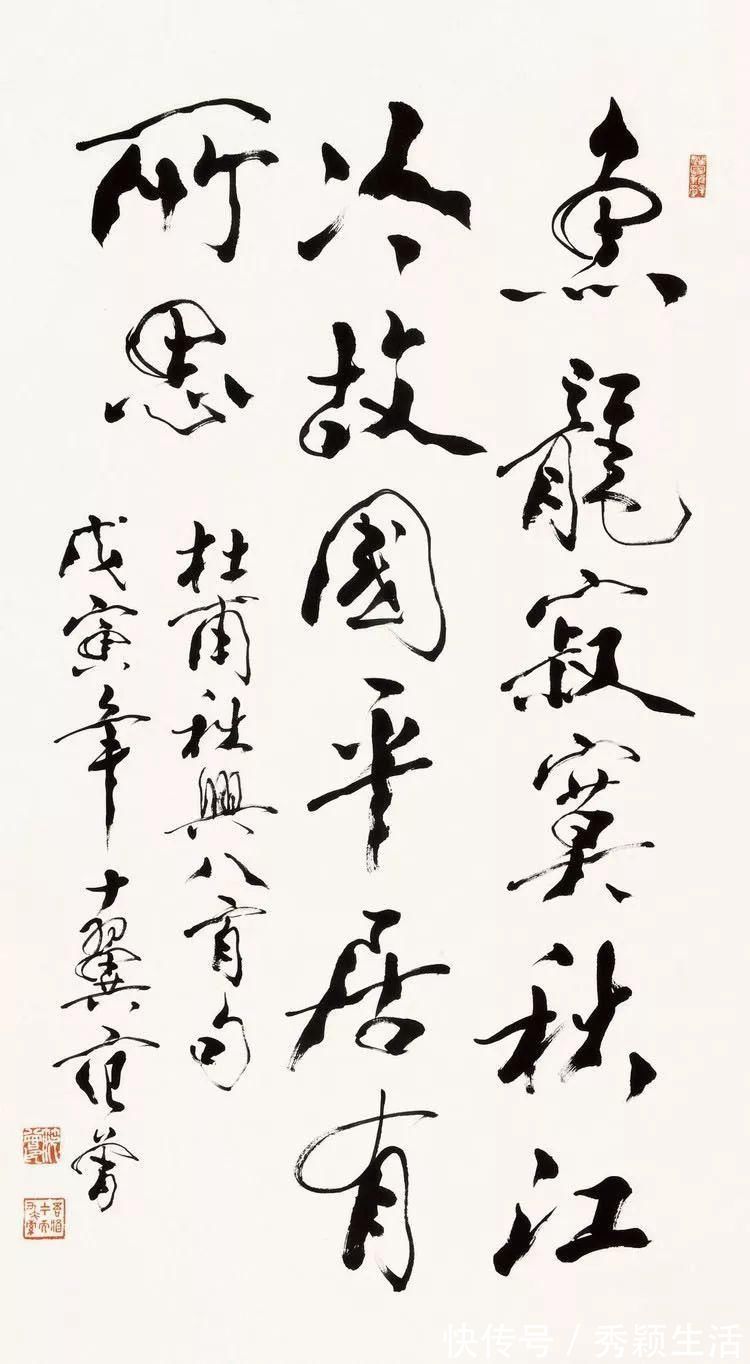 魚龍寂寞秋江
冷故國平居有
所思
杜甫秋興八首句
戊寅年十翼范曾
快传号/秀颖生活